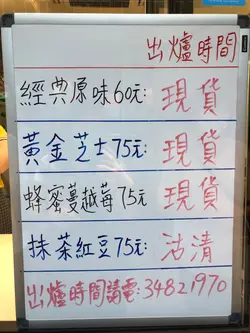 出爐時間
經典原味60元:現貨
黃金芝士75元:現貨
蜂蜜蔓越莓75元現貨
抹茶紅豆75元:沽清
出爐時間請電:34821970